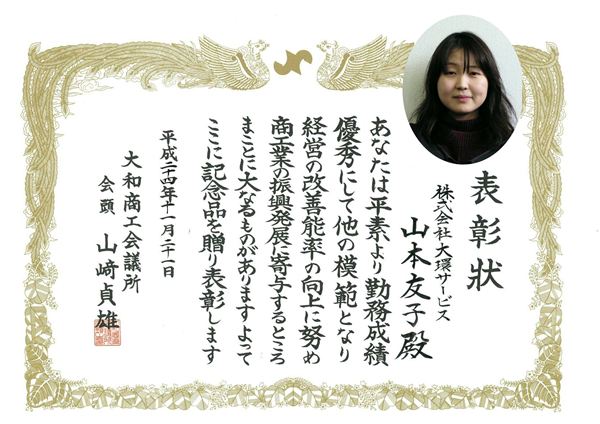 表彰状
株式会社大環サービス
山本友子殿
あなたは平素より勤務成績
優秀にして他の模範となり
経営の改善能率の向上に努め
商工業の振興発展に寄与するところ
まことに大なるものがありますよって
ここに記念品を贈り表彰します
平成二十四年十一月二十一日
大和商工会議所
会頭 山﨑貞雄